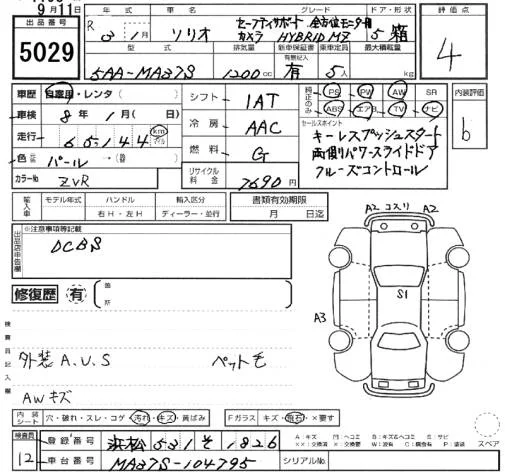 9月11日
出品番号
5029
年式 車名 グレード ドア・形状 評価点
R 3年1月 ソリオ セーフティサポート 全方位モニター用カメラ HYBRID MZ 5 箱
4
型式 排気量 新車保証書 乗車定員 最大積載量
5AA-MA37S 1200cc 有 5人 kg
有無記入
車歴 自家用・レンタ( )
車検 8年1月( 日)
走行 65,144 km
マイル
色 パール →( )
カラーNo ZVR
シフト IAT
冷房 AAC
燃料 G
リサイクル料金 7690円
純正のみ PS PW AW SR
ABS エアB TV ナビ
内装評価
b
セールスポイント
キーレスプッシュスタート
両側パワースライドドア
クルーズコントロール
輸入車 モデル年式 ハンドル 輸入区分 書類有効期限
年 右H・左H ディーラー・並行 月 日迄
出品店申告欄
※注意事項等記載
DCBS
修復歴 有 箇所
検査員記入欄
外装 A.U.S ペット毛
AWキズ
A2 コスリ A2
S1
A3
内装シート 穴・破れ・スレ・コゲ 汚れ・キズ・黄ばみ Fガラス キズ・飛石・×要す
スペア
検査員
12
登録番号 浜松 531 そ 1826
車台番号 MA37S-104795
シリアルNo.
A:キズ U:ヘコミ B:キズ&ヘコミ S:サビ
XX:交換済 X:要交換 W:波 C:腐食 P:塗装